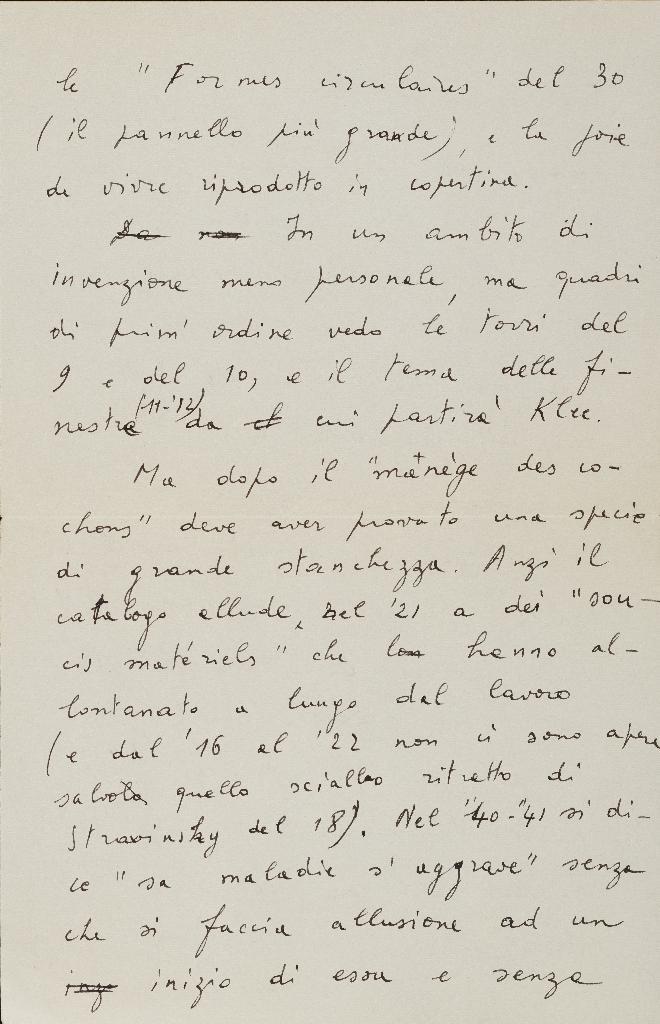 le "Formes circulaires" del 30
(il pannello più grande), e la joie
de vivre riprodotto in copertina.
Da non In un ambito di
invenzione meno personale, ma quadri
di prim' ordine vedo le torri del
9 e del 10, e il tema delle fi-
nestre (11-'12) da cui partirà Klee.
Ma dopo il "manège des co-
chons" deve aver provato una specie
di grande stanchezza. Anzi il
catalogo allude, nel '21 a dei "sou-
cis matériels" che lon hanno al-
lontanato a lungo dal lavoro
(e dal '16 al '22 non ci sono opere
salvo quello scialbo ritratto di
Stravinsky del 18). Nel '40-'41 si di-
ce "sa maladie s'aggrave" senza
che si faccia allusione ad un
inizio di essa e senza